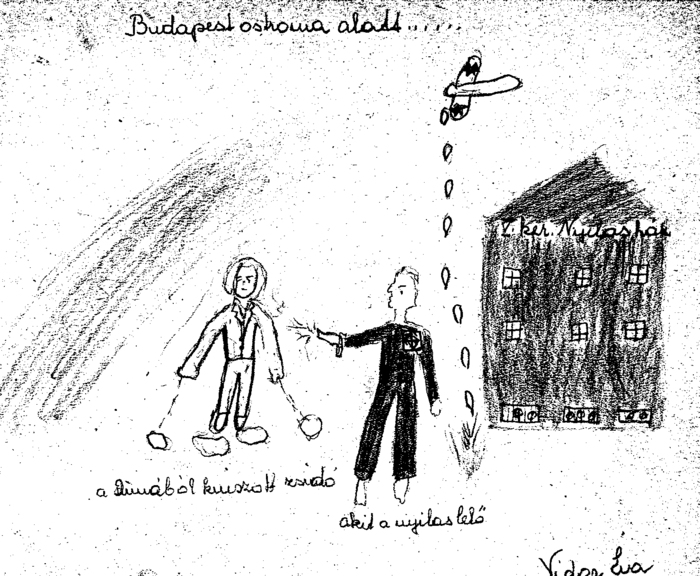 Budapest ostroma alatt......
V. ker. Nyilas ház
a Dunából kiúszott zsidó
akit a nyilas lelő
Vidor Éva